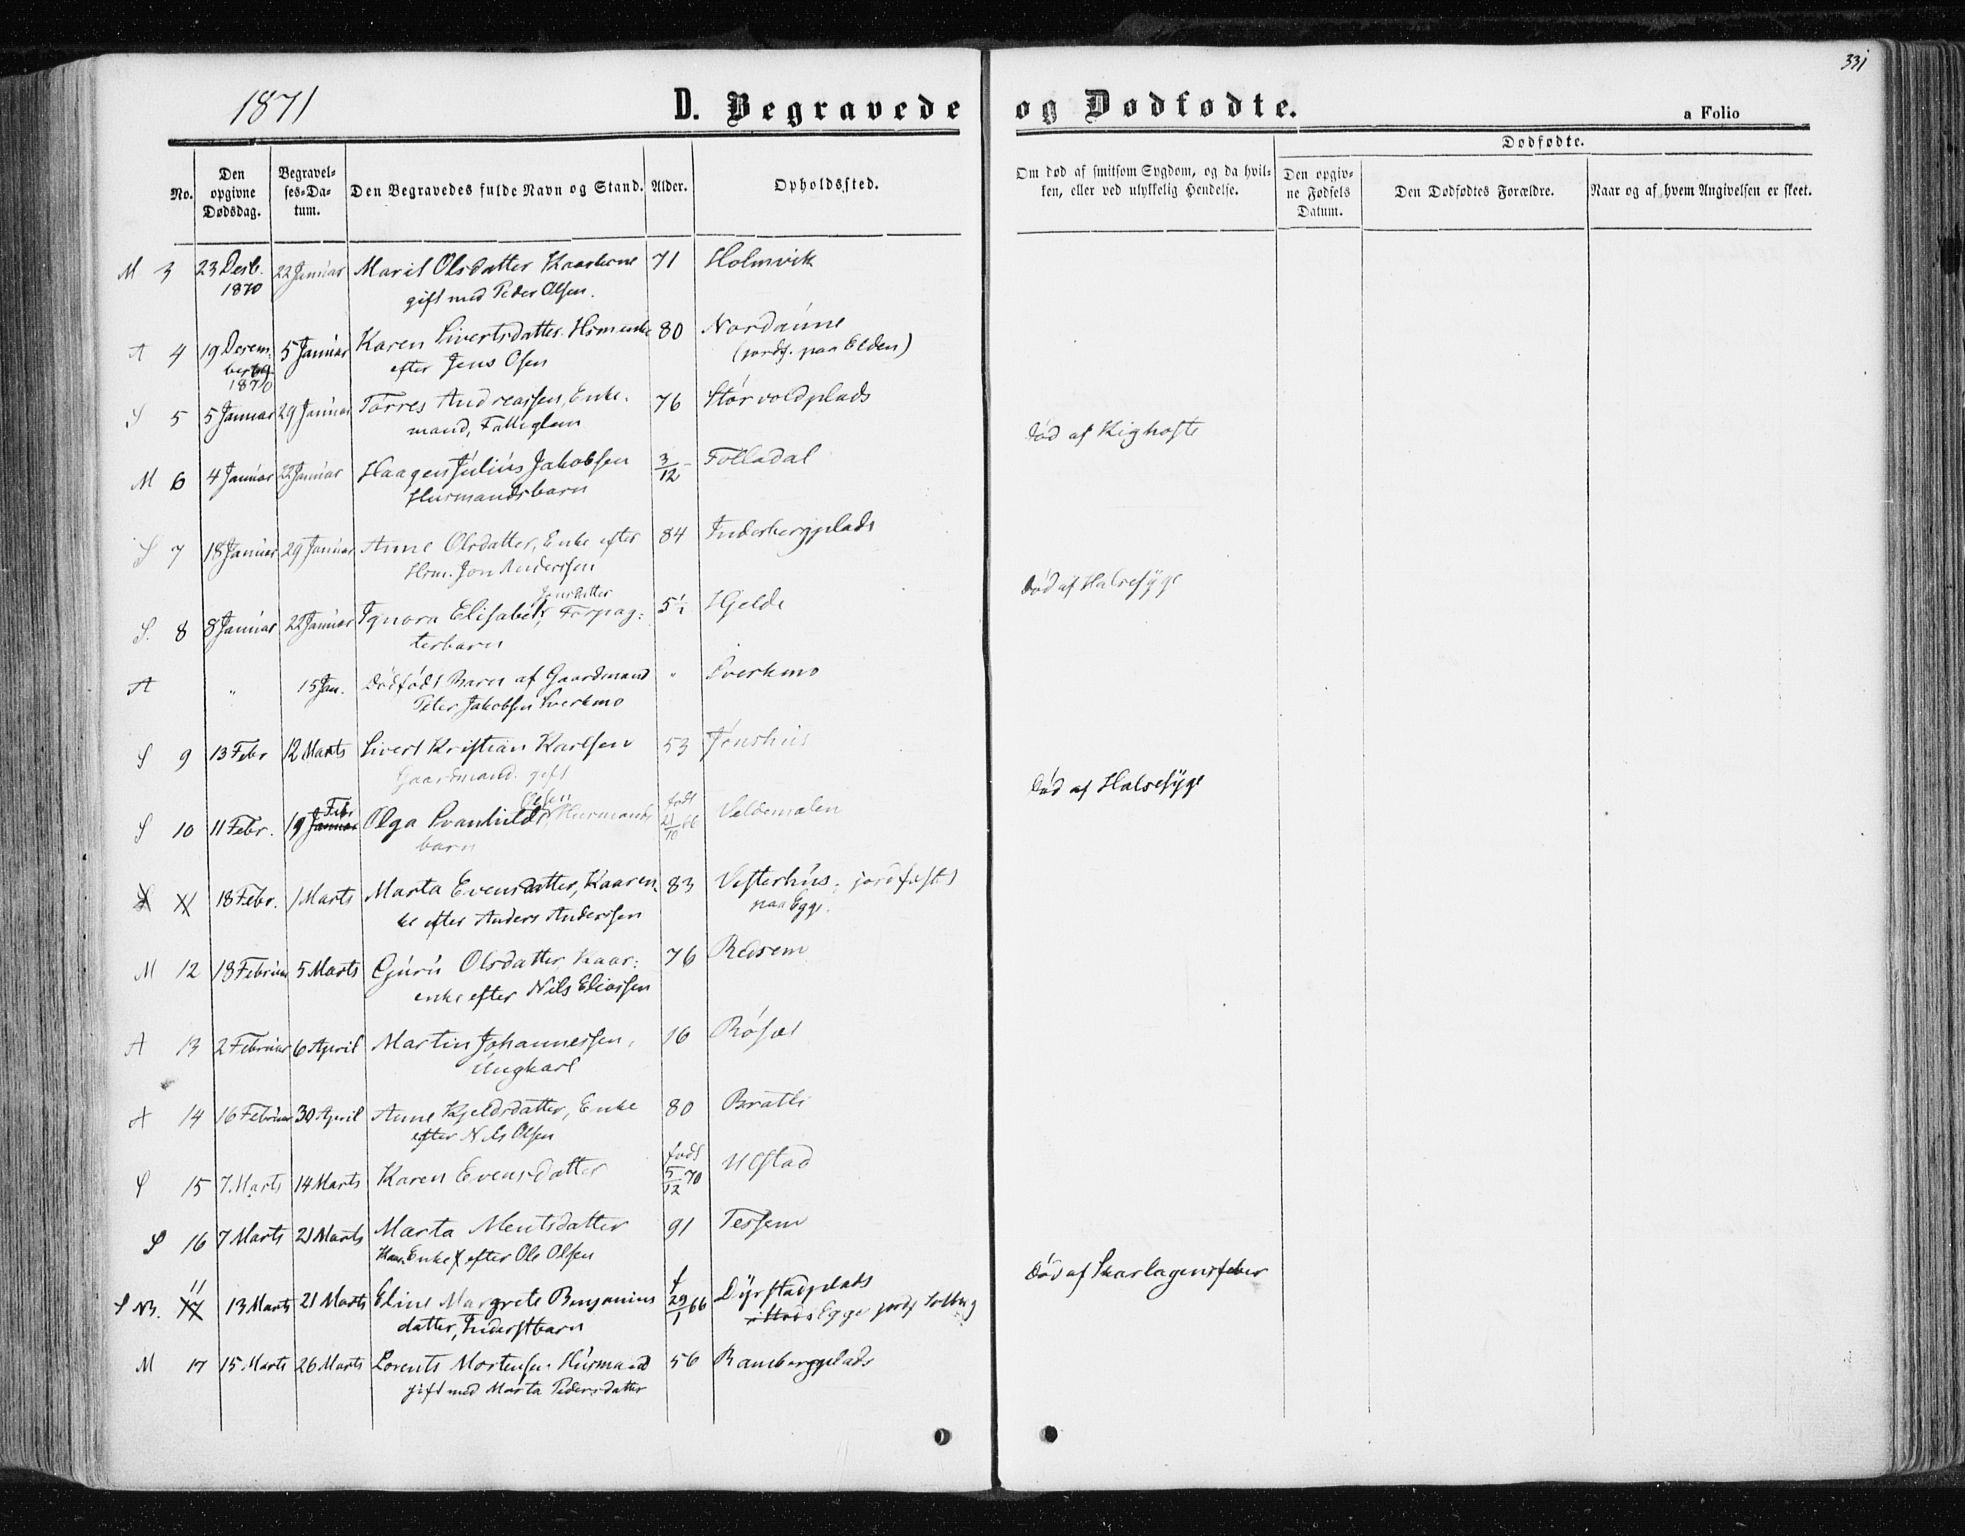 331
1871
D. Begravede og Dødfødte.
a Folio
Dødfødte.
No.
Den opgivne Dødsdag.
Begravelses-Datum.
Den Begravedes fulde Navn og Stand.
Alder.
Opholdssted.
Om død af smitsom Sygdom, og da hvilken, eller ved ulykkelig Hendelse.
Den opgivne Fødsels Datum.
Den Dødfødtes Forældre.
Naar og af hvem Angivelsen er skeet.
M 3 23 Desb. 22 Januar Marit Olsdatter Kaarkone 71 Holmvik
1870 gift med Peder Olsen.
A 4 19 Decem- 5 Januar Karen Sivertsdatter Hsmenke 80 Nordaune
ber 1870 efter Jens Olsen (jordf. paa Elden)
S 5 5 Januar 29 Januar Torres Andreassen, Enke- 76 Storvoldplads
mand, Fattiglem
M 6 4 Januar 22 Januar Haagen Julius Jakobsen 3/12 Folladal Død af Kighoste
Husmandsbarn
S 7 18 Januar 29 Januar Anne Olsdatter, Enke efter 84 Inderbergplads
Hsm. Jon Anderssen
S. 8 8 Januar 22 Januar Ignora Elisabet, Forpag- 5½ Hjelde Død af Halsesyge
terbarn
A " 15 Jan. Dødfødt Barn af Gaardmand " Sverkmo
Peter Jakobsen Sverkmo
S 9 13 Febr 12 Marts Sivert Kristian Karlsen 53 Jønshus
Gaardmand. gift
Olsen
S 10 11 Febr. 19 Januar Febr Olga Svanhilde, Husmands- født 21/10 66 Veldemalen Død af Halsesyge
barn
S 11 18 Febr. 1 Marts Marta Evensdatter, Kaaren- 83 Vesterhus, jordfæstet
ke efter Anders Anderssen paa Egge.
M 12 18 Februar 5 Marts Guru Olsdatter Kaar- 76 Redsem
enke efter Nils Eliassen
A 13 2 Februar 6 April Martin Johannessen, 16 Røsæt
Ungkarl
A 14 16 Februar 30 April Anne Kjeldsdatter, Enke 80 Bratli
efter Nils Olsen
S 15 7 Marts 14 Marts Karen Evensdatter født 5/12 70 Ulstad
S 16 7 Marts 21 Marts Marta Mentsdatter 91 Tessem
Kaar Enke efter Ole Olsen
S NB. 11 17 13 Marts 21 Marts Eline Margrete Benjamins f 29/1 66 Dyrstadplads Død af Skarlagensfeber
datter, Inderstbarn i Egge jordf Solberg
M 17 15 Marts 26 Marts Lorents Mortensen Husmand 56 Rambergplads
gift med Marta Pedersdatter